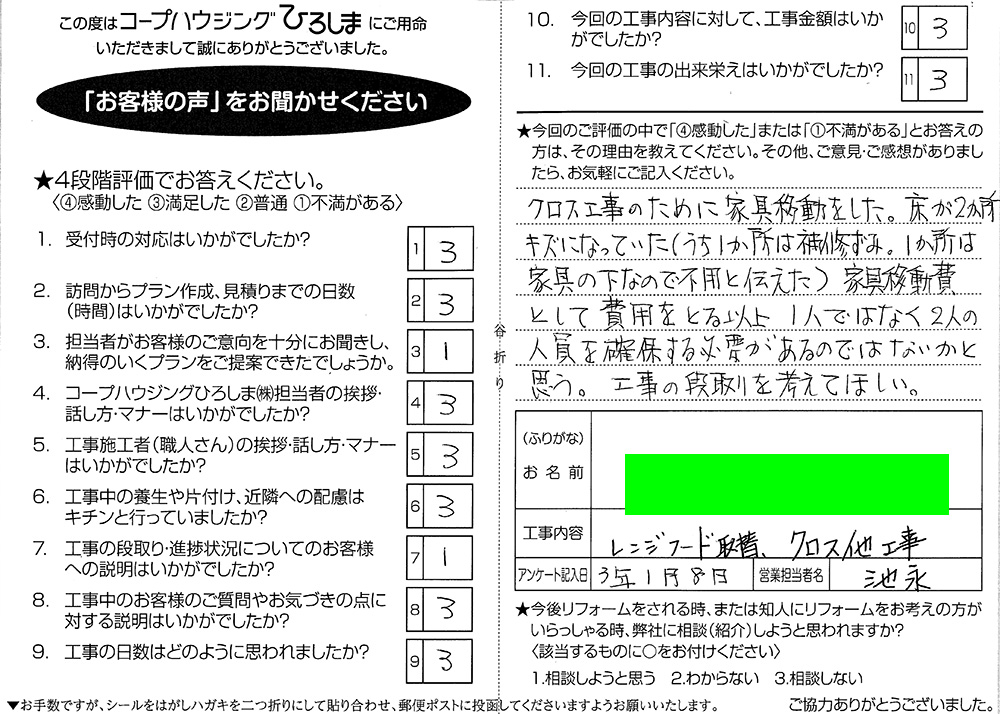 この度はコープハウジングひろしまにご用命
いただきまして誠にありがとうございました。
「お客様の声」をお聞かせください
★4段階評価でお答えください。
〈④感動した ③満足した ②普通 ①不満がある〉
1. 受付時の対応はいかがでしたか?
1 3
2. 訪問からプラン作成、見積りまでの日数
(時間)はいかがでしたか?
2 3
3. 担当者がお客様のご意向を十分にお聞きし、
納得のいくプランをご提案できたでしょうか。
3 1
4. コープハウジングひろしま㈱担当者の挨拶・
話し方・マナーはいかがでしたか?
4 3
5. 工事施工者(職人さん)の挨拶・話し方・マナー
はいかがでしたか?
5 3
6. 工事中の養生や片付け、近隣への配慮は
キチンと行っていましたか?
6 3
7. 工事の段取り・進捗状況についてのお客様
への説明はいかがでしたか?
7 1
8. 工事中のお客様のご質問やお気づきの点に
対する説明はいかがでしたか?
8 3
9. 工事の日数はどのように思われましたか?
9 3
▼お手数ですが、シールをはがしハガキを二つ折りにして貼り合わせ、郵便ポストに投函してくださいますようお願いいたします。
谷折り
10. 今回の工事内容に対して、工事金額はいか
がでしたか?
10 3
11. 今回の工事の出来栄えはいかがでしたか?
11 3
★今回のご評価の中で「④感動した」または「①不満がある」とお答えの
方は、その理由を教えてください。その他、ご意見・ご感想がありまし
たら、お気軽にご記入ください。
クロス工事のために家具移動をした。床が2か所
キズになっていた(うち1か所は補修ずみ。1か所は
家具の下なので不用と伝えた)家具移動費
として費用をとる以上 1人ではなく2人の
人員を確保する必要があるのではないかと
思う。工事の段取りを考えてほしい。
(ふりがな)
お名前
工事内容 レンジフード取替、クロス他工事
アンケート記入日 3年1月8日 営業担当者名 池永
★今後リフォームをされる時、または知人にリフォームをお考えの方が
いらっしゃる時、弊社に相談(紹介)しようと思われますか?
〈該当するものに○をお付けください〉
1.相談しようと思う 2.わからない 3.相談しない
ご協力ありがとうございました。